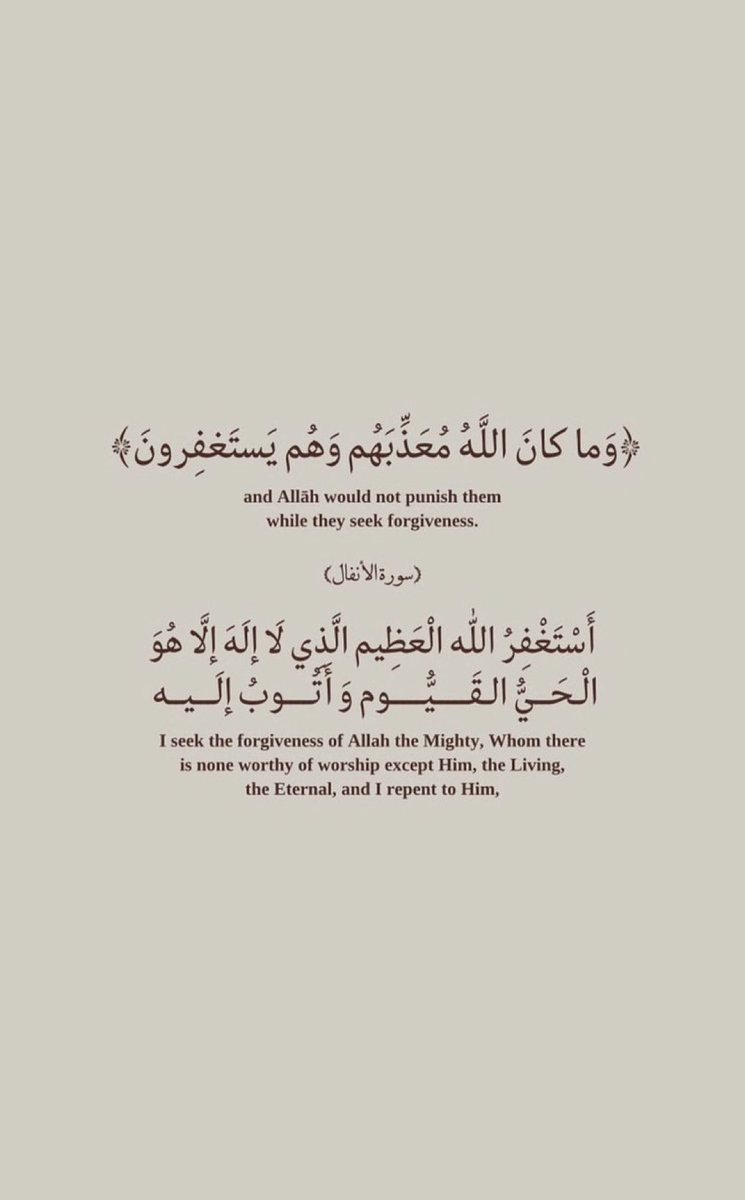 ﴿وَما كانَ اللَّهُ مُعَذِّبَهُم وَهُم يَستَغفِرونَ﴾
and Allāh would not punish them
while they seek forgiveness.
(سورة الأنفال)
أَسْتَغْفِرُ اللّٰه الْعَظِيم الَّذِي لَا إِلَهَ إِلَّا هُوَ
الْحَــيُّ القَــــيُّــــوم وَ أَتُــــوبُ إِلَــيــه
I seek the forgiveness of Allah the Mighty, Whom there
is none worthy of worship except Him, the Living,
the Eternal, and I repent to Him,